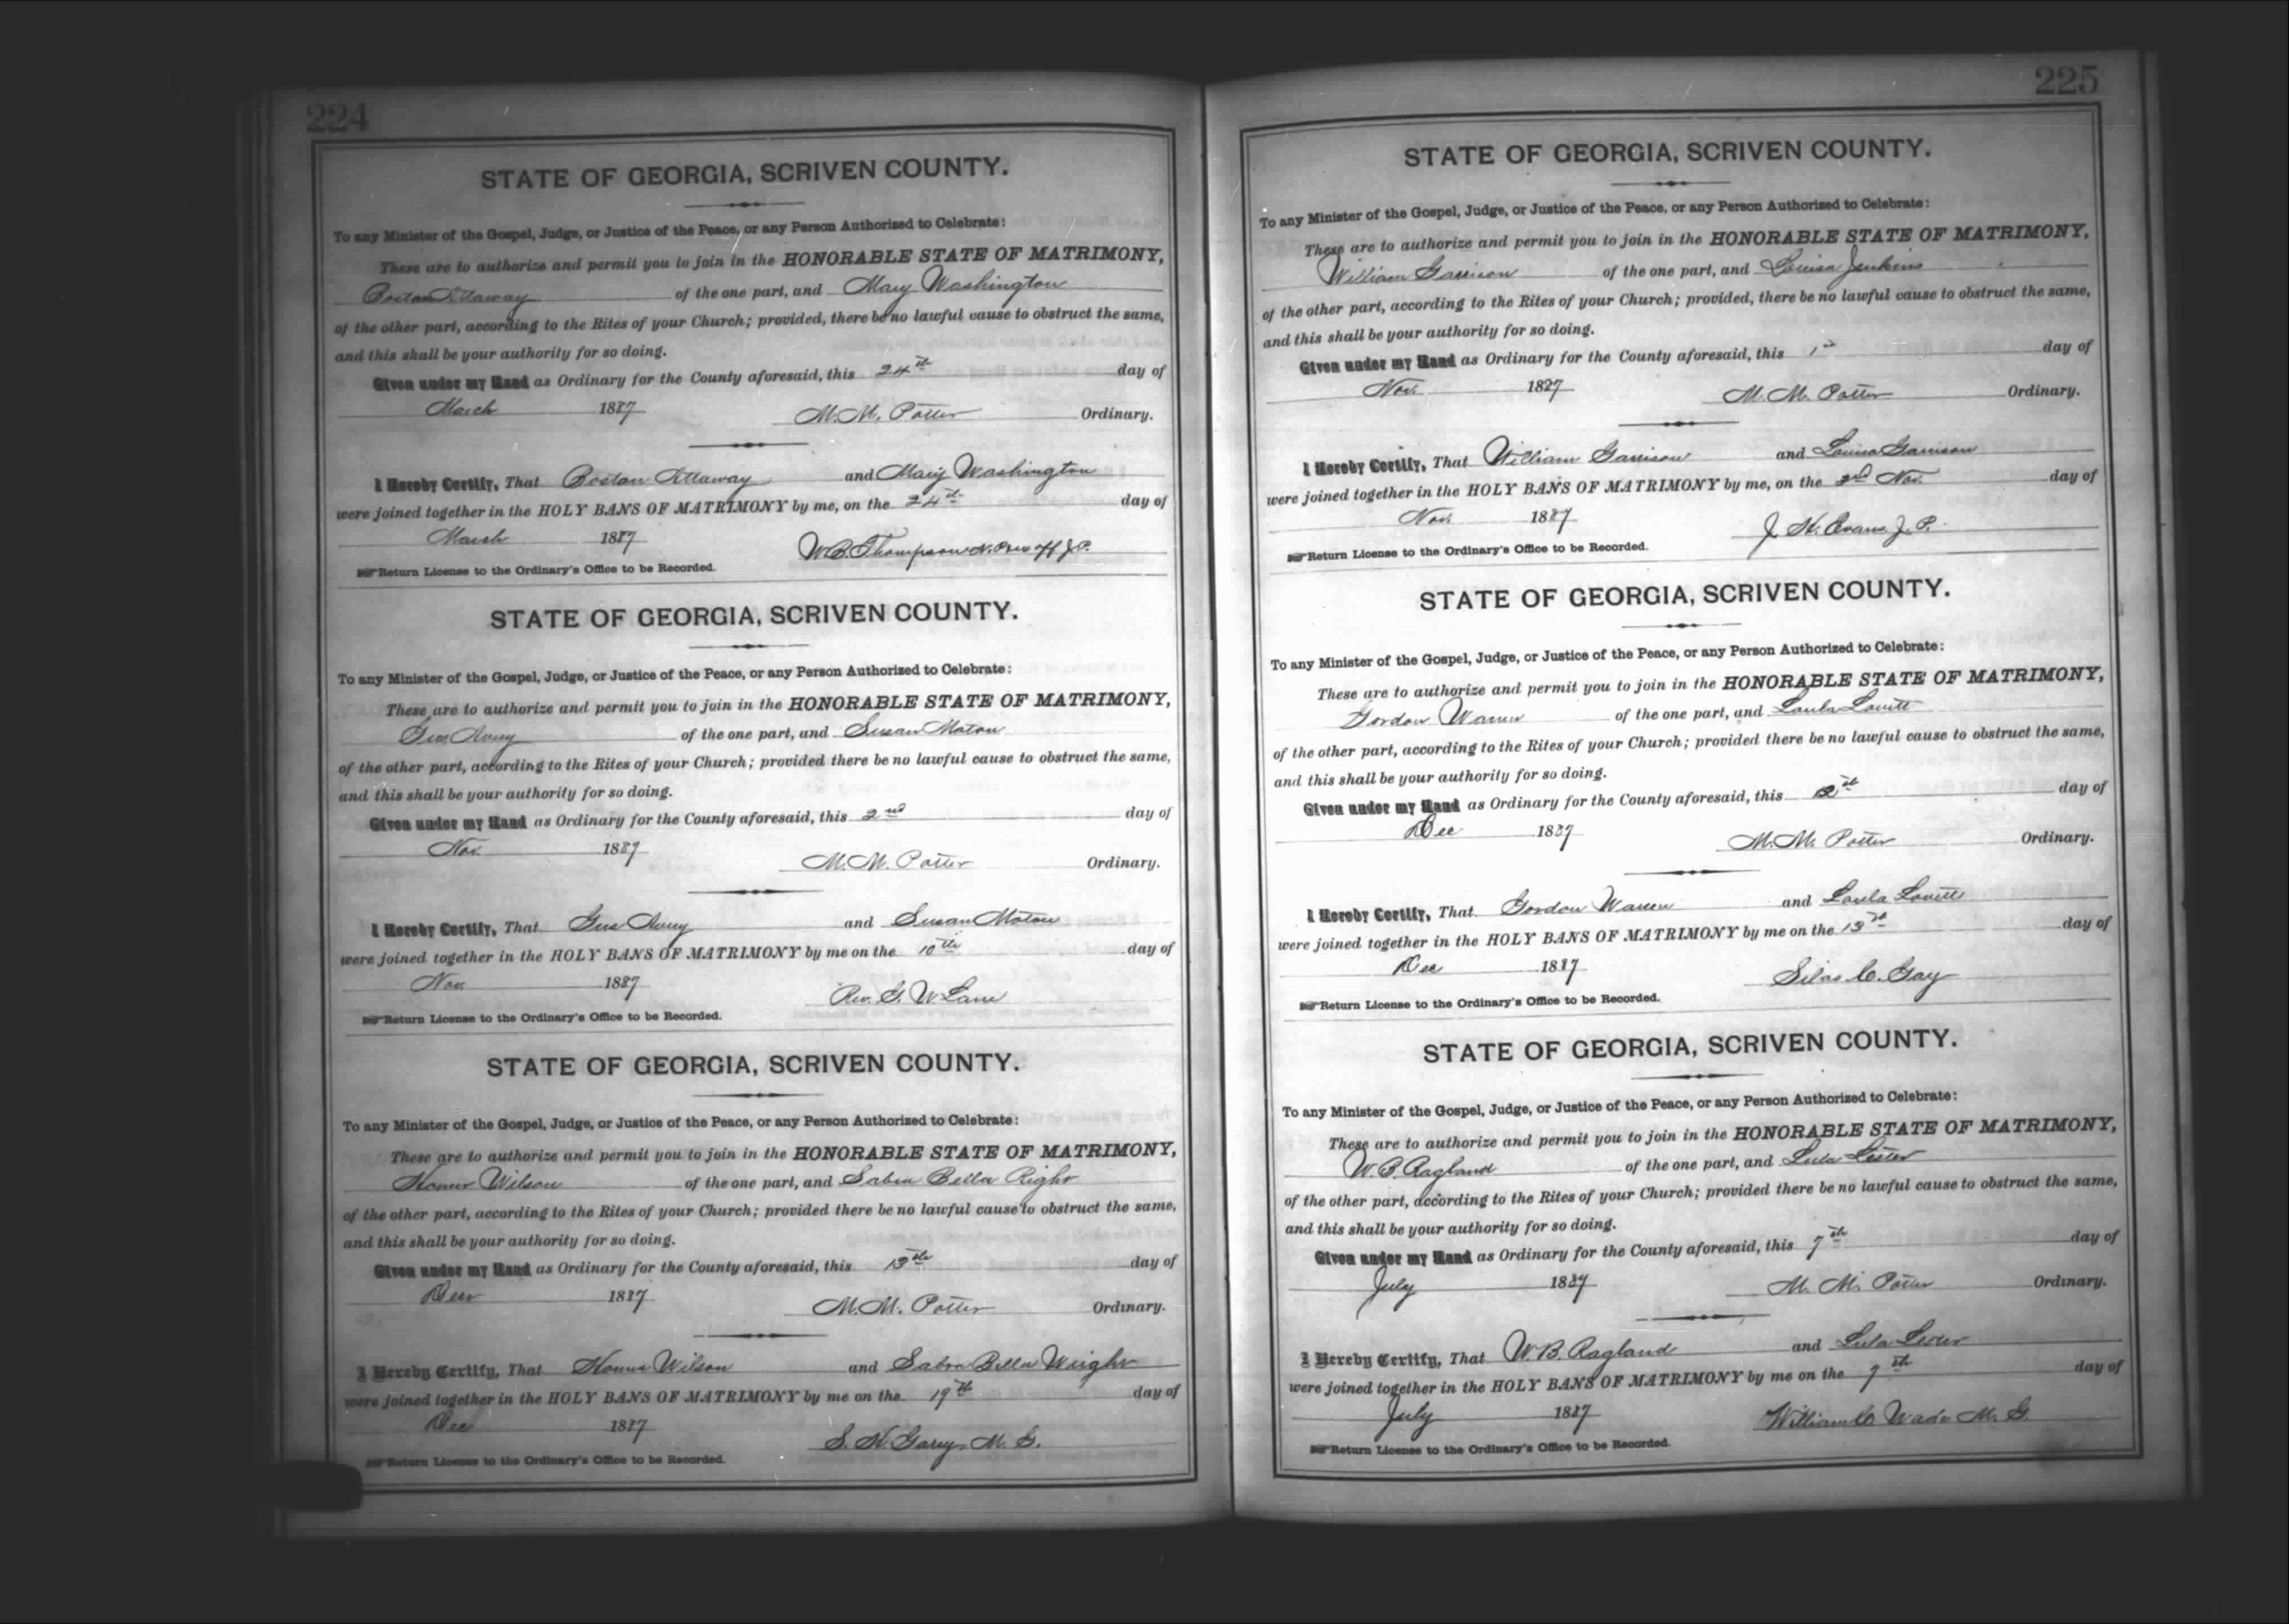 224
STATE OF GEORGIA, SCRIVEN COUNTY.
To any Minister of the Gospel, Judge, or Justice of the Peace, or any Person Authorized to Celebrate:
These are to authorize and permit you to join in the HONORABLE STATE OF MATRIMONY,
Boston Attaway of the one part, and Mary Washington
of the other part, according to the Rites of your Church; provided, there be no lawful cause to obstruct the same,
and this shall be your authority for so doing.
Given under my Hand as Ordinary for the County aforesaid, this 24th day of
March 1887 M. M. Potter Ordinary.
I Hereby Certify, That Boston Attaway and Mary Washington
were joined together in the HOLY BANS OF MATRIMONY by me, on the 24th day of
March 1887 W. B. Thompson N. P. J. P.
Return License to the Ordinary's Office to be Recorded.
STATE OF GEORGIA, SCRIVEN COUNTY.
To any Minister of the Gospel, Judge, or Justice of the Peace, or any Person Authorized to Celebrate:
These are to authorize and permit you to join in the HONORABLE STATE OF MATRIMONY,
Gus Avery of the one part, and Susan Moton
of the other part, according to the Rites of your Church; provided there be no lawful cause to obstruct the same,
and this shall be your authority for so doing.
Given under my Hand as Ordinary for the County aforesaid, this 2nd day of
Nov. 1887 M. M. Potter Ordinary.
I Hereby Certify, That Gus Avery and Susan Moton
were joined together in the HOLY BANS OF MATRIMONY by me on the 10th day of
Nov. 1887 Rev. G. W. Lane
Return License to the Ordinary's Office to be Recorded.
STATE OF GEORGIA, SCRIVEN COUNTY.
To any Minister of the Gospel, Judge, or Justice of the Peace, or any Person Authorized to Celebrate:
These are to authorize and permit you to join in the HONORABLE STATE OF MATRIMONY,
Homer Wilson of the one part, and Sabra Bella Right
of the other part, according to the Rites of your Church; provided there be no lawful cause to obstruct the same,
and this shall be your authority for so doing.
Given under my Hand as Ordinary for the County aforesaid, this 13th day of
Decr 1887 M. M. Potter Ordinary.
I Hereby Certify, That Homer Wilson and Sabra Bella Wright
were joined together in the HOLY BANS OF MATRIMONY by me on the 19th day of
Dec 1887 S. H. Gary, M. G.
Return License to the Ordinary's Office to be Recorded.
225
STATE OF GEORGIA, SCRIVEN COUNTY.
To any Minister of the Gospel, Judge, or Justice of the Peace, or any Person Authorized to Celebrate:
These are to authorize and permit you to join in the HONORABLE STATE OF MATRIMONY,
William Garrison of the one part, and Louisa Jenkins
of the other part, according to the Rites of your Church; provided, there be no lawful cause to obstruct the same,
and this shall be your authority for so doing.
Given under my Hand as Ordinary for the County aforesaid, this 1st day of
Nov. 1887 M. M. Potter Ordinary.
I Hereby Certify, That William Garrison and Louisa Garrison
were joined together in the HOLY BANS OF MATRIMONY by me, on the 2nd Nov. day of
Nov. 1887 J. H. Evans, J. P.
Return License to the Ordinary's Office to be Recorded.
STATE OF GEORGIA, SCRIVEN COUNTY.
To any Minister of the Gospel, Judge, or Justice of the Peace, or any Person Authorized to Celebrate:
These are to authorize and permit you to join in the HONORABLE STATE OF MATRIMONY,
Gordon Warren of the one part, and Laula Lovett
of the other part, according to the Rites of your Church; provided there be no lawful cause to obstruct the same,
and this shall be your authority for so doing.
Given under my Hand as Ordinary for the County aforesaid, this 12th day of
Dec 1887 M. M. Potter Ordinary.
I Hereby Certify, That Gordon Warren and Laula Lovett
were joined together in the HOLY BANS OF MATRIMONY by me on the 13th day of
Dec 1887 Silas C. Gay
Return License to the Ordinary's Office to be Recorded.
STATE OF GEORGIA, SCRIVEN COUNTY.
To any Minister of the Gospel, Judge, or Justice of the Peace, or any Person Authorized to Celebrate:
These are to authorize and permit you to join in the HONORABLE STATE OF MATRIMONY,
W. B. Ragland of the one part, and Lula Lester
of the other part, according to the Rites of your Church; provided there be no lawful cause to obstruct the same,
and this shall be your authority for so doing.
Given under my Hand as Ordinary for the County aforesaid, this 7th day of
July 1887 M. M. Potter Ordinary.
I Hereby Certify, That W. B. Ragland and Lula Lester
were joined together in the HOLY BANS OF MATRIMONY by me on the 7th day of
July 1887 William C. Wade M. G.
Return License to the Ordinary's Office to be Recorded.